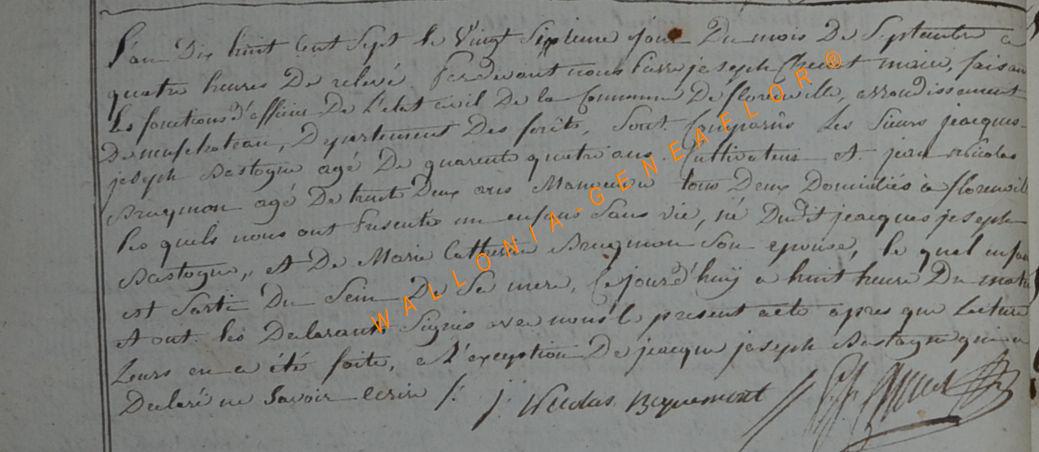 L'an Dix huit Cent Sept le Vingt Sixieme jour Du mois De Septembre a
quatre heures De relevé Pardevant nous Pierre joseph maire, faisant
les fonctions d'officier De L'etat civil De la Commune De florenville, arrondissement
De neufchateau, Departement Des forêts, Sont Comparûs Les Sieurs jacques
joseph Bastogne agé De quarente quatre ans Cultivateur et jean Nicolas
Bruqmon agé De trente Deux ans Manoeuvre tous Deux Domiciliés à florenville
les quels nous ont Presenté un enfant Sans vie, né Dudit jacques joseph
Bastogne, et De Marie Catherine Bruqmon Son epouse, le quel enfant
est Sorti Du Sein De Sa mere, Cejourd'huÿ a huit heure Du matin
et ont les Declarants Signés avec nous le present acte apres que Lecture
Leurs en a été faite, a L'exception De jacque joseph Bastogne qui a
Declaré ne Savoir ecrire /: j: Nicolas Brquemont
WALLONIA-GENEAFLOR ®